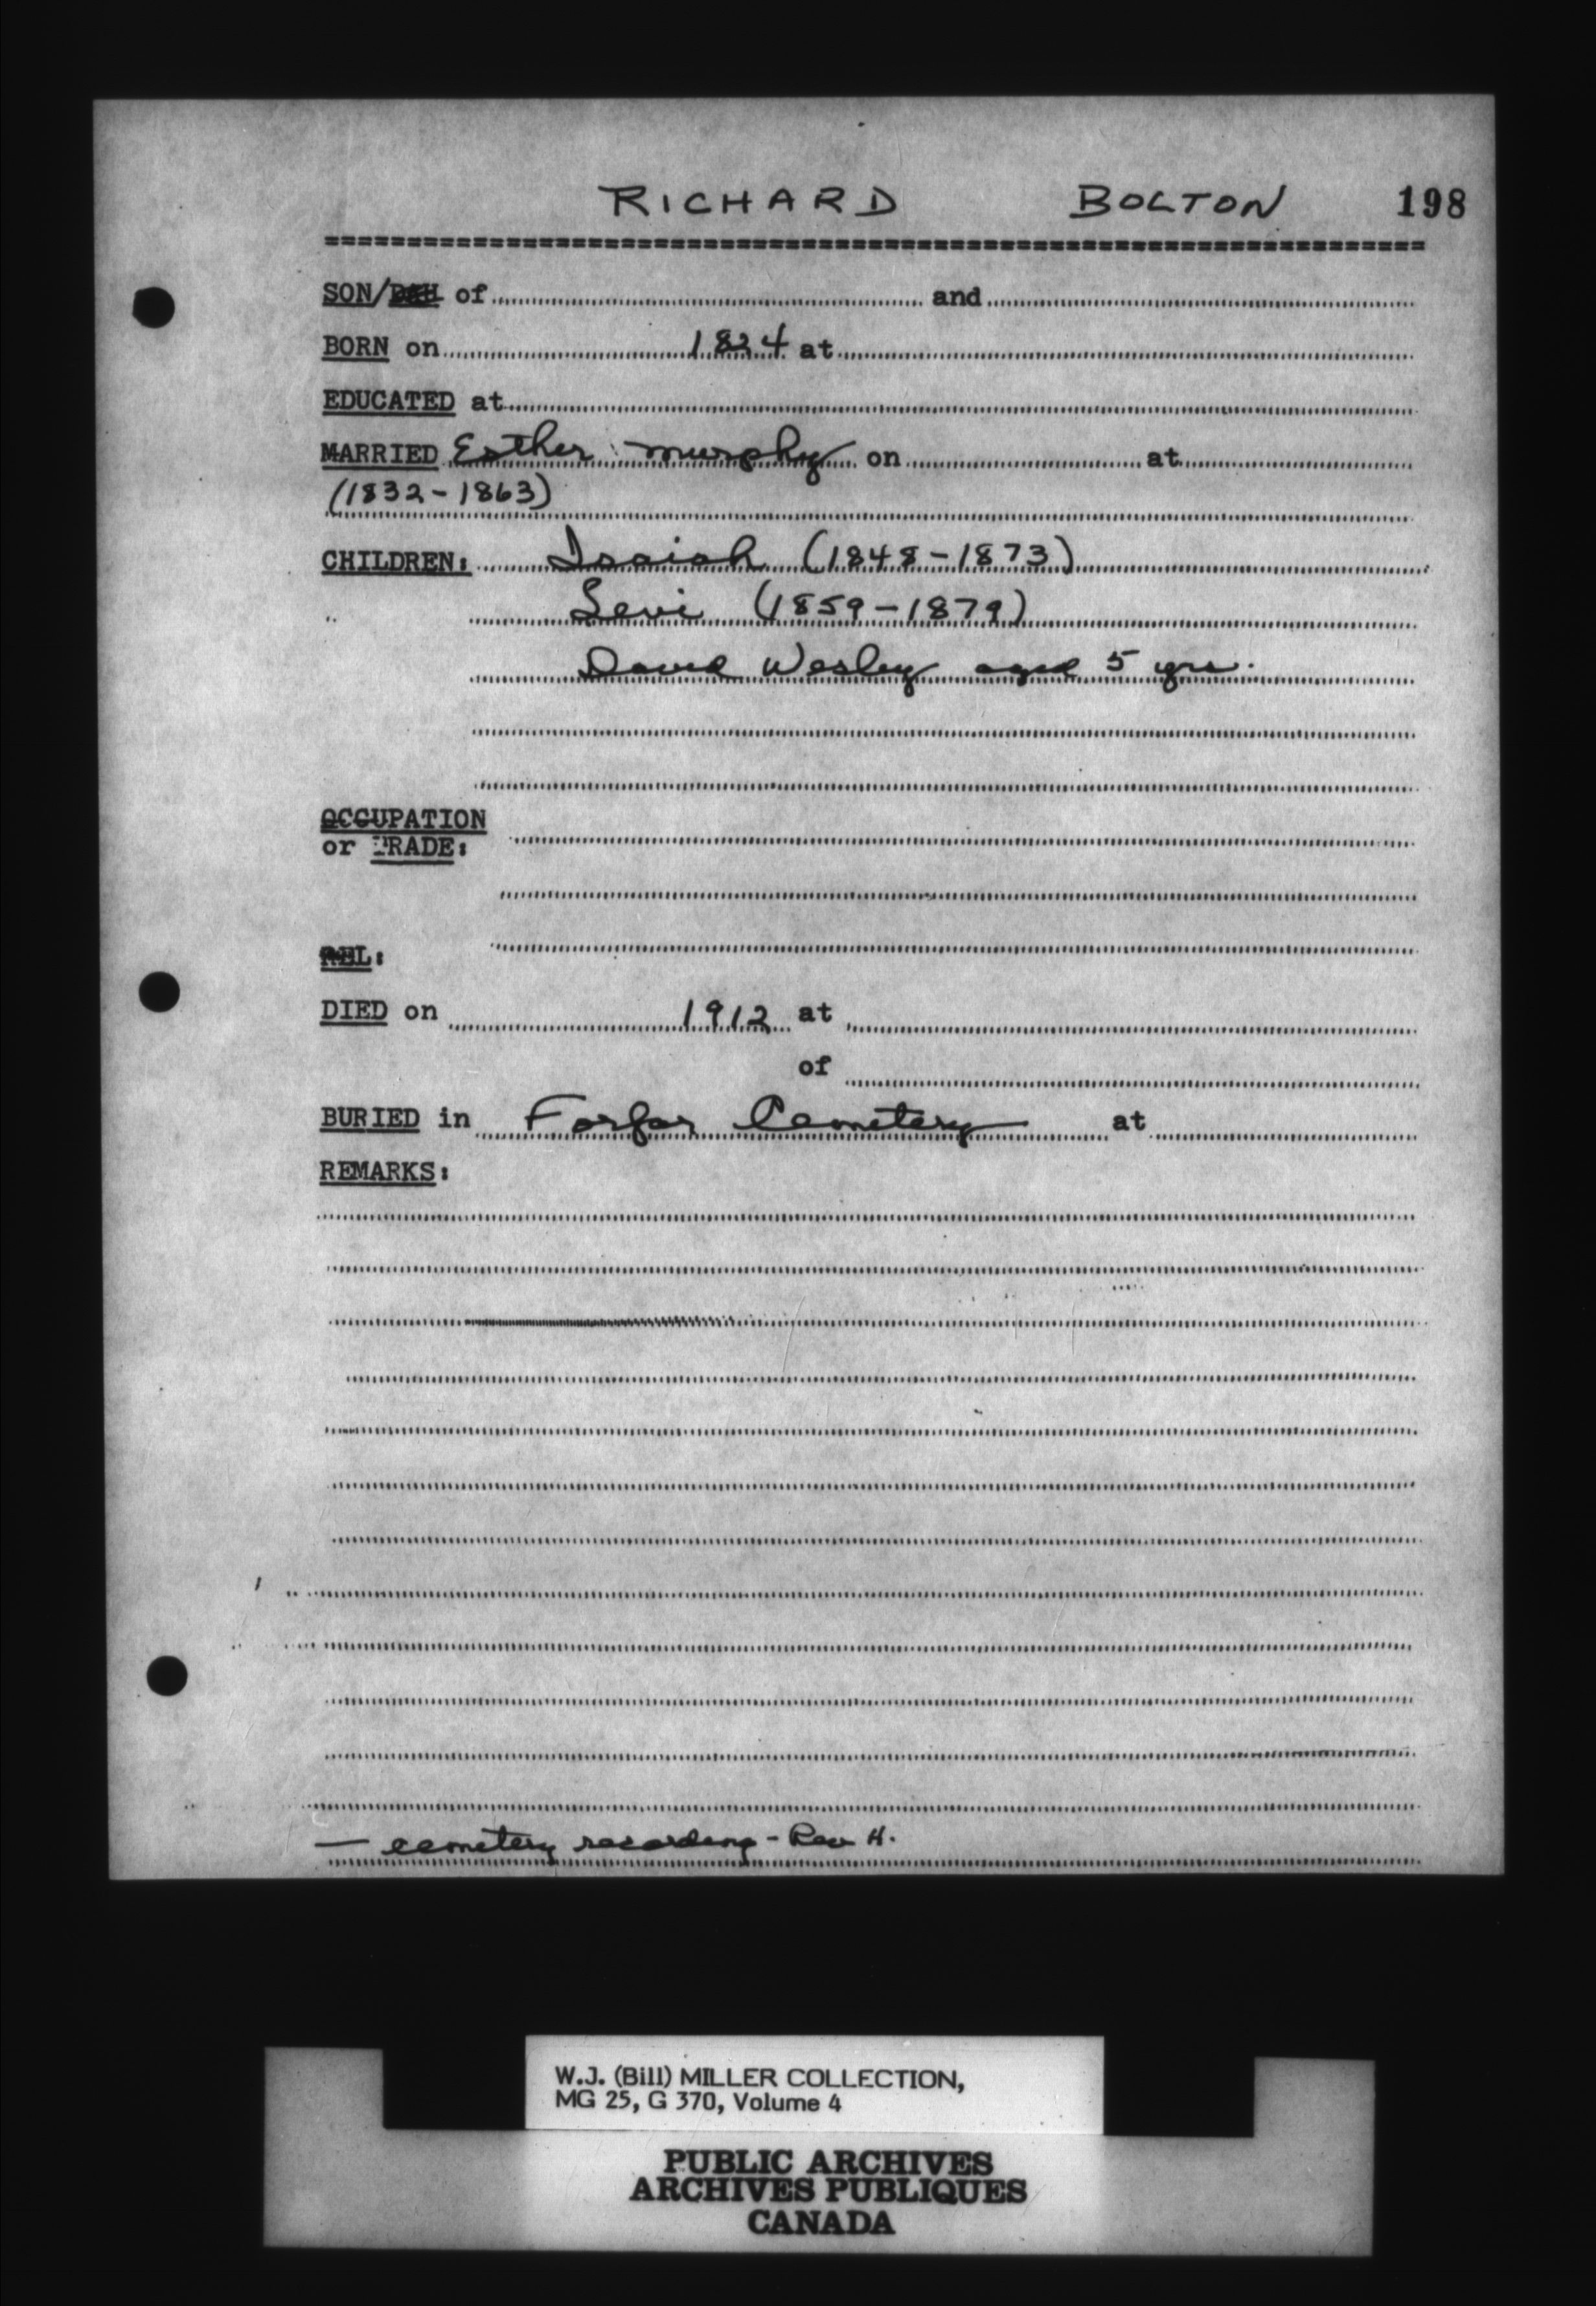 RICHARD BOLTON 198
SON/DAU of and
BORN on 1824 at
EDUCATED at
MARRIED Esther Murphy on at
(1832-1863)
CHILDREN: Isaiah (1848-1873)
Levi (1859-1879)
David Wesley aged 5 yrs.
OCCUPATION
or TRADE:
REL:
DIED on 1912 at
of
BURIED in Forfar Cemetery at
REMARKS:
— cemetery recording - Rev H.
W.J. (Bill) MILLER COLLECTION,
MG 25, G 370, Volume 4
PUBLIC ARCHIVES
ARCHIVES PUBLIQUES
CANADA